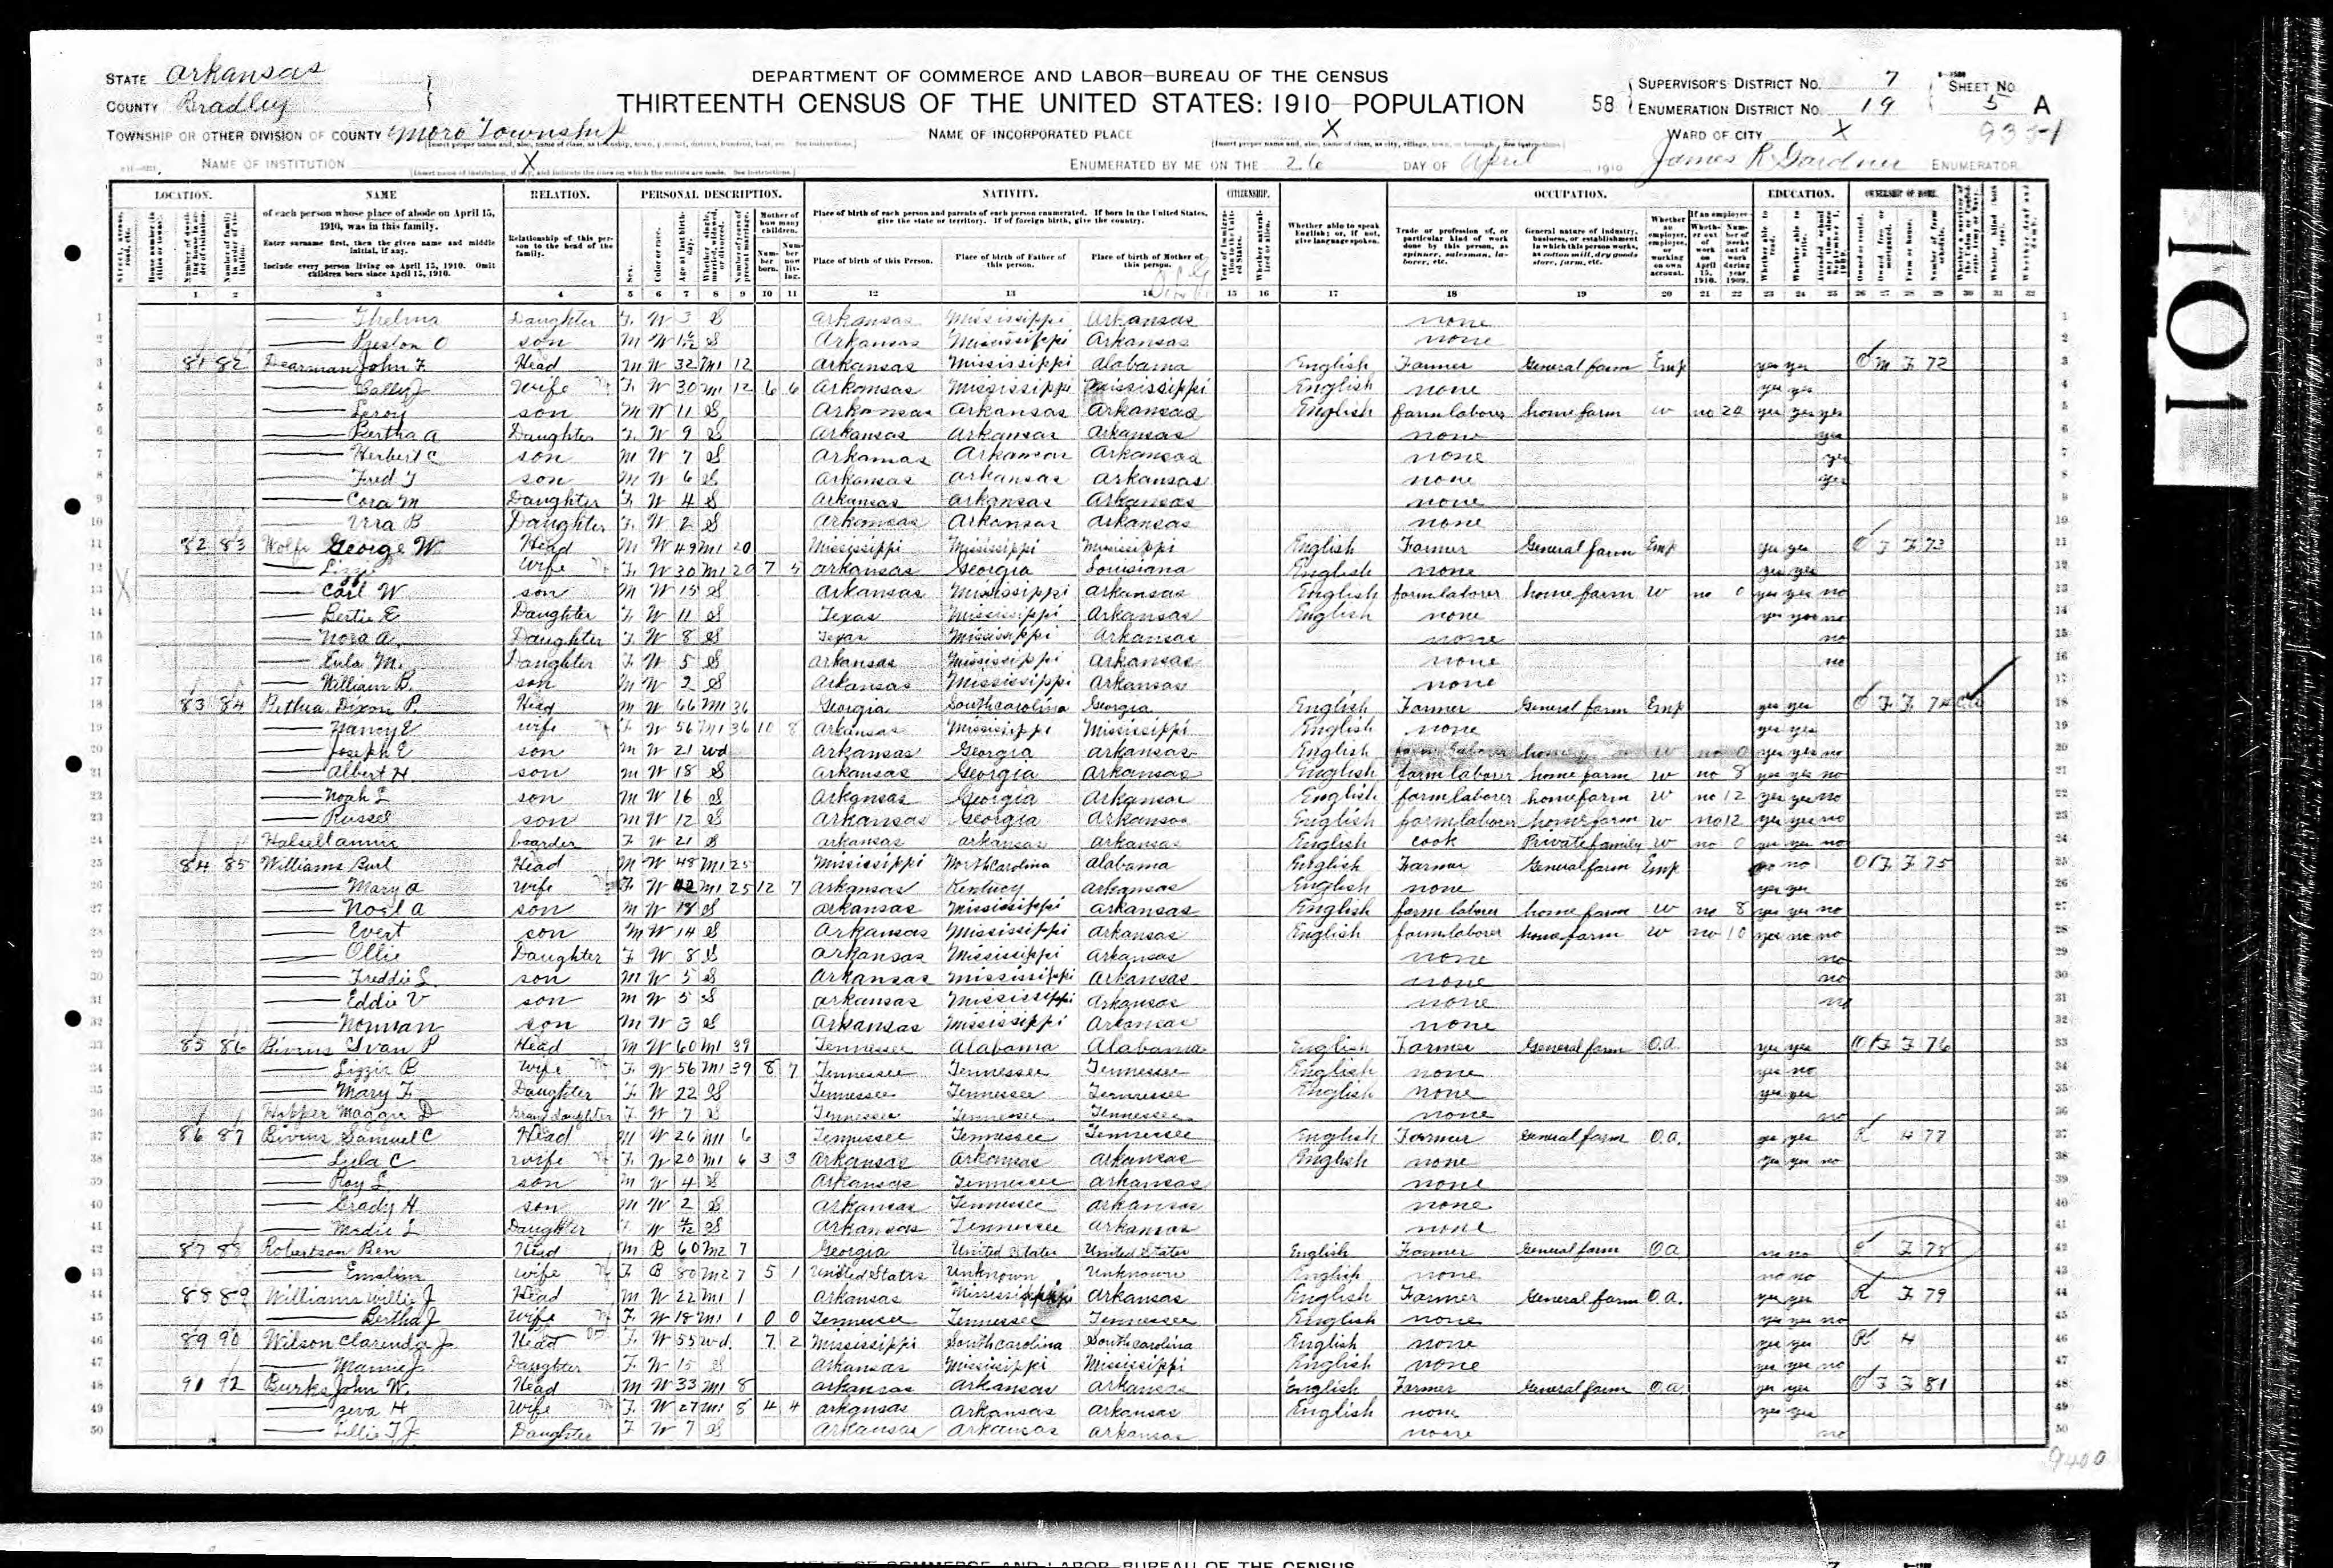 STATE Arkansas
COUNTY Bradley
TOWNSHIP OR OTHER DIVISION OF COUNTY Moro Township
NAME OF INSTITUTION X
DEPARTMENT OF COMMERCE AND LABOR—BUREAU OF THE CENSUS
THIRTEENTH CENSUS OF THE UNITED STATES: 1910—POPULATION
NAME OF INCORPORATED PLACE X
ENUMERATED BY ME ON THE 26 DAY OF April 1910 James R Gardner ENUMERATOR
58
SUPERVISOR'S DISTRICT NO. 7
ENUMERATION DISTRICT NO. 19
SHEET NO. 5 A
WARD OF CITY X
LOCATION. NAME RELATION. PERSONAL DESCRIPTION. NATIVITY. CITIZENSHIP. OCCUPATION. EDUCATION. OWNERSHIP OF HOME.
of each person whose place of abode on April 15, 1910, was in this family.
Enter surname first, then the given name and middle initial, if any.
Include every person living on April 15, 1910. Omit children born since April 15, 1910.
Relationship of this person to the head of the family.
Place of birth of each person and parents of each person enumerated. If born in the United States, give the state or territory. If of foreign birth, give the country.
Place of birth of this Person. Place of birth of Father of this person. Place of birth of Mother of this person.
Whether able to speak English; or, if not, give language spoken.
Trade or profession of, or particular kind of work done by this person, as spinner, salesman, laborer, etc.
General nature of industry, business, or establishment in which this person works, as cotton mill, dry goods store, farm, etc.
1 2 3 4 5 6 7 8 9 10 11 12 13 14 15 16 17 18 19 20 21 22 23 24 25 26 27 28 29 30 31 32
1 Thelma Daughter F W 3 S Arkansas Mississippi Arkansas none 1
2 Preston O son M W S Arkansas Mississippi Arkansas none 2
3 81 82 Dearman John F Head M W 32 M1 12 Arkansas Mississippi Alabama English Farmer General farm Emp yes yes O M F 72 3
4 Salley J Wife F W 30 M1 12 6 6 Arkansas Mississippi Mississippi English none yes yes 4
5 Leroy son M W 11 S Arkansas Arkansas Arkansas English farm laborer home farm W no 24 yes yes yes 5
6 Bertha A Daughter F W 9 S Arkansas Arkansas Arkansas none yes 6
7 Herbert C son M W 7 S Arkansas Arkansas Arkansas none yes 7
8 Fred son M W 6 S Arkansas Arkansas Arkansas none yes 8
9 Cora M Daughter F W 4 S Arkansas Arkansas Arkansas none 9
10 Vira B Daughter F W 2 S Arkansas Arkansas Arkansas none 10
11 82 83 Wolfe George W Head M W 49 M1 20 Mississippi Mississippi Mississippi English Farmer General farm Emp yes yes O F F 73 11
12 Lizzie Wife F W 30 M1 20 7 5 Arkansas Georgia Louisiana English none yes yes 12
13 Carl W son M W 15 S Arkansas Mississippi Arkansas English farm laborer home farm W no 0 yes yes no 13
14 Bertie E Daughter F W 11 S Texas Mississippi Arkansas English none yes yes no 14
15 Nora A. Daughter F W 8 S Texas Mississippi Arkansas none no 15
16 Eula M. Daughter F W 5 S Arkansas Mississippi Arkansas none no 16
17 William B. son M W 2 S Arkansas Mississippi Arkansas none 17
18 83 84 Bethea Dixon P. Head M W 66 M1 36 Georgia South Carolina Georgia English Farmer General farm Emp yes yes O F F 74 CA 18
19 Nancy E wife F W 56 M1 36 10 8 Arkansas Mississippi Mississippi English none yes yes 19
20 Joseph E son M W 21 Wd Arkansas Georgia Arkansas English farm laborer home W no 0 yes yes no 20
21 Albert H. son M W 18 S Arkansas Georgia Arkansas English farm laborer home farm W no 8 yes yes no 21
22 Noah L son M W 16 S Arkansas Georgia Arkansas English farm laborer home farm W no 12 yes yes no 22
23 Russel son M W 12 S Arkansas Georgia Arkansas English farm laborer home farm W no 12 yes yes no 23
24 Halsell Annie boarder F W 21 S Arkansas Arkansas Arkansas English cook Private family W no 0 yes yes no 24
25 84 85 Williams Burl Head M W 48 M1 25 Mississippi North Carolina Alabama English Farmer General farm Emp no no O F F 75 25
26 Mary A Wife F W 42 M1 25 12 7 Arkansas Kentucy Arkansas English none yes yes 26
27 Noel A son M W 18 S Arkansas Mississippi Arkansas English farm laborer home farm W no 8 yes yes no 27
28 Evert son M W 14 S Arkansas Mississippi Arkansas English farm laborer home farm W no 10 yes no no 28
29 Ollie Daughter F W 8 S Arkansas Mississippi Arkansas none no 29
30 Freddie L. son M W 5 S Arkansas Mississippi Arkansas none no 30
31 Eddie V son M W 5 S Arkansas Mississippi Arkansas none no 31
32 Norman son M W 3 S Arkansas Mississippi Arkansas none 32
33 85 86 Bivins Ivan P Head M W 60 M1 39 Tennessee Alabama Alabama English Farmer General farm O.A. yes yes O F F 76 33
34 Lizzie B wife F W 56 M1 39 8 7 Tennessee Tennessee Tennessee English none yes no 34
35 Mary F. Daughter F W 22 S Tennessee Tennessee Tennessee English none yes yes 35
36 Hopper Maggie D Grand daughter F W 7 S Tennessee Tennessee Tennessee none no 36
37 86 87 Bivins Samuel C Head M W 26 M1 6 Tennessee Tennessee Tennessee English Farmer General farm O.A. yes yes R H 77 37
38 Lula C wife F W 20 M1 6 3 3 Arkansas Arkansas Arkansas English none yes yes no 38
39 Roy L son M W 4 S Arkansas Tennessee Arkansas none 39
40 Grady H son M W 2 S Arkansas Tennessee Arkansas none 40
41 Modie L Daughter F W S Arkansas Tennessee Arkansas none 41
42 87 88 Robertson Ben Head M B 60 M2 7 Georgia United States United States English Farmer General farm OA no no F 78 42
43 Emaline wife F B 80 M2 7 5 1 United States Unknown Unknown English none no no 43
44 88 89 Williams Willie J Head M W 22 M1 1 Arkansas Mississippi Arkansas English Farmer General farm O.A. yes yes R F 79 44
45 Bertha J Wife F W 18 M1 1 0 0 Tennessee Tennessee Tennessee English none yes yes no 45
46 89 90 Wilson Clarinda J Head F W 55 wd. 7 2 Mississippi South Carolina South Carolina English none yes yes R H 46
47 Mannie J Daughter F W 15 S Arkansas Mississippi Mississippi English none yes yes no 47
48 91 92 Burks John W. Head M W 33 M1 8 Arkansas Arkansas Arkansas English Farmer General farm O.A. yes yes O F F 81 48
49 Neva H Wife F W 27 M1 8 4 4 Arkansas Arkansas Arkansas English none yes yes 49
50 Lillie T J Daughter F W 7 S Arkansas Arkansas Arkansas none no 50
9400
101